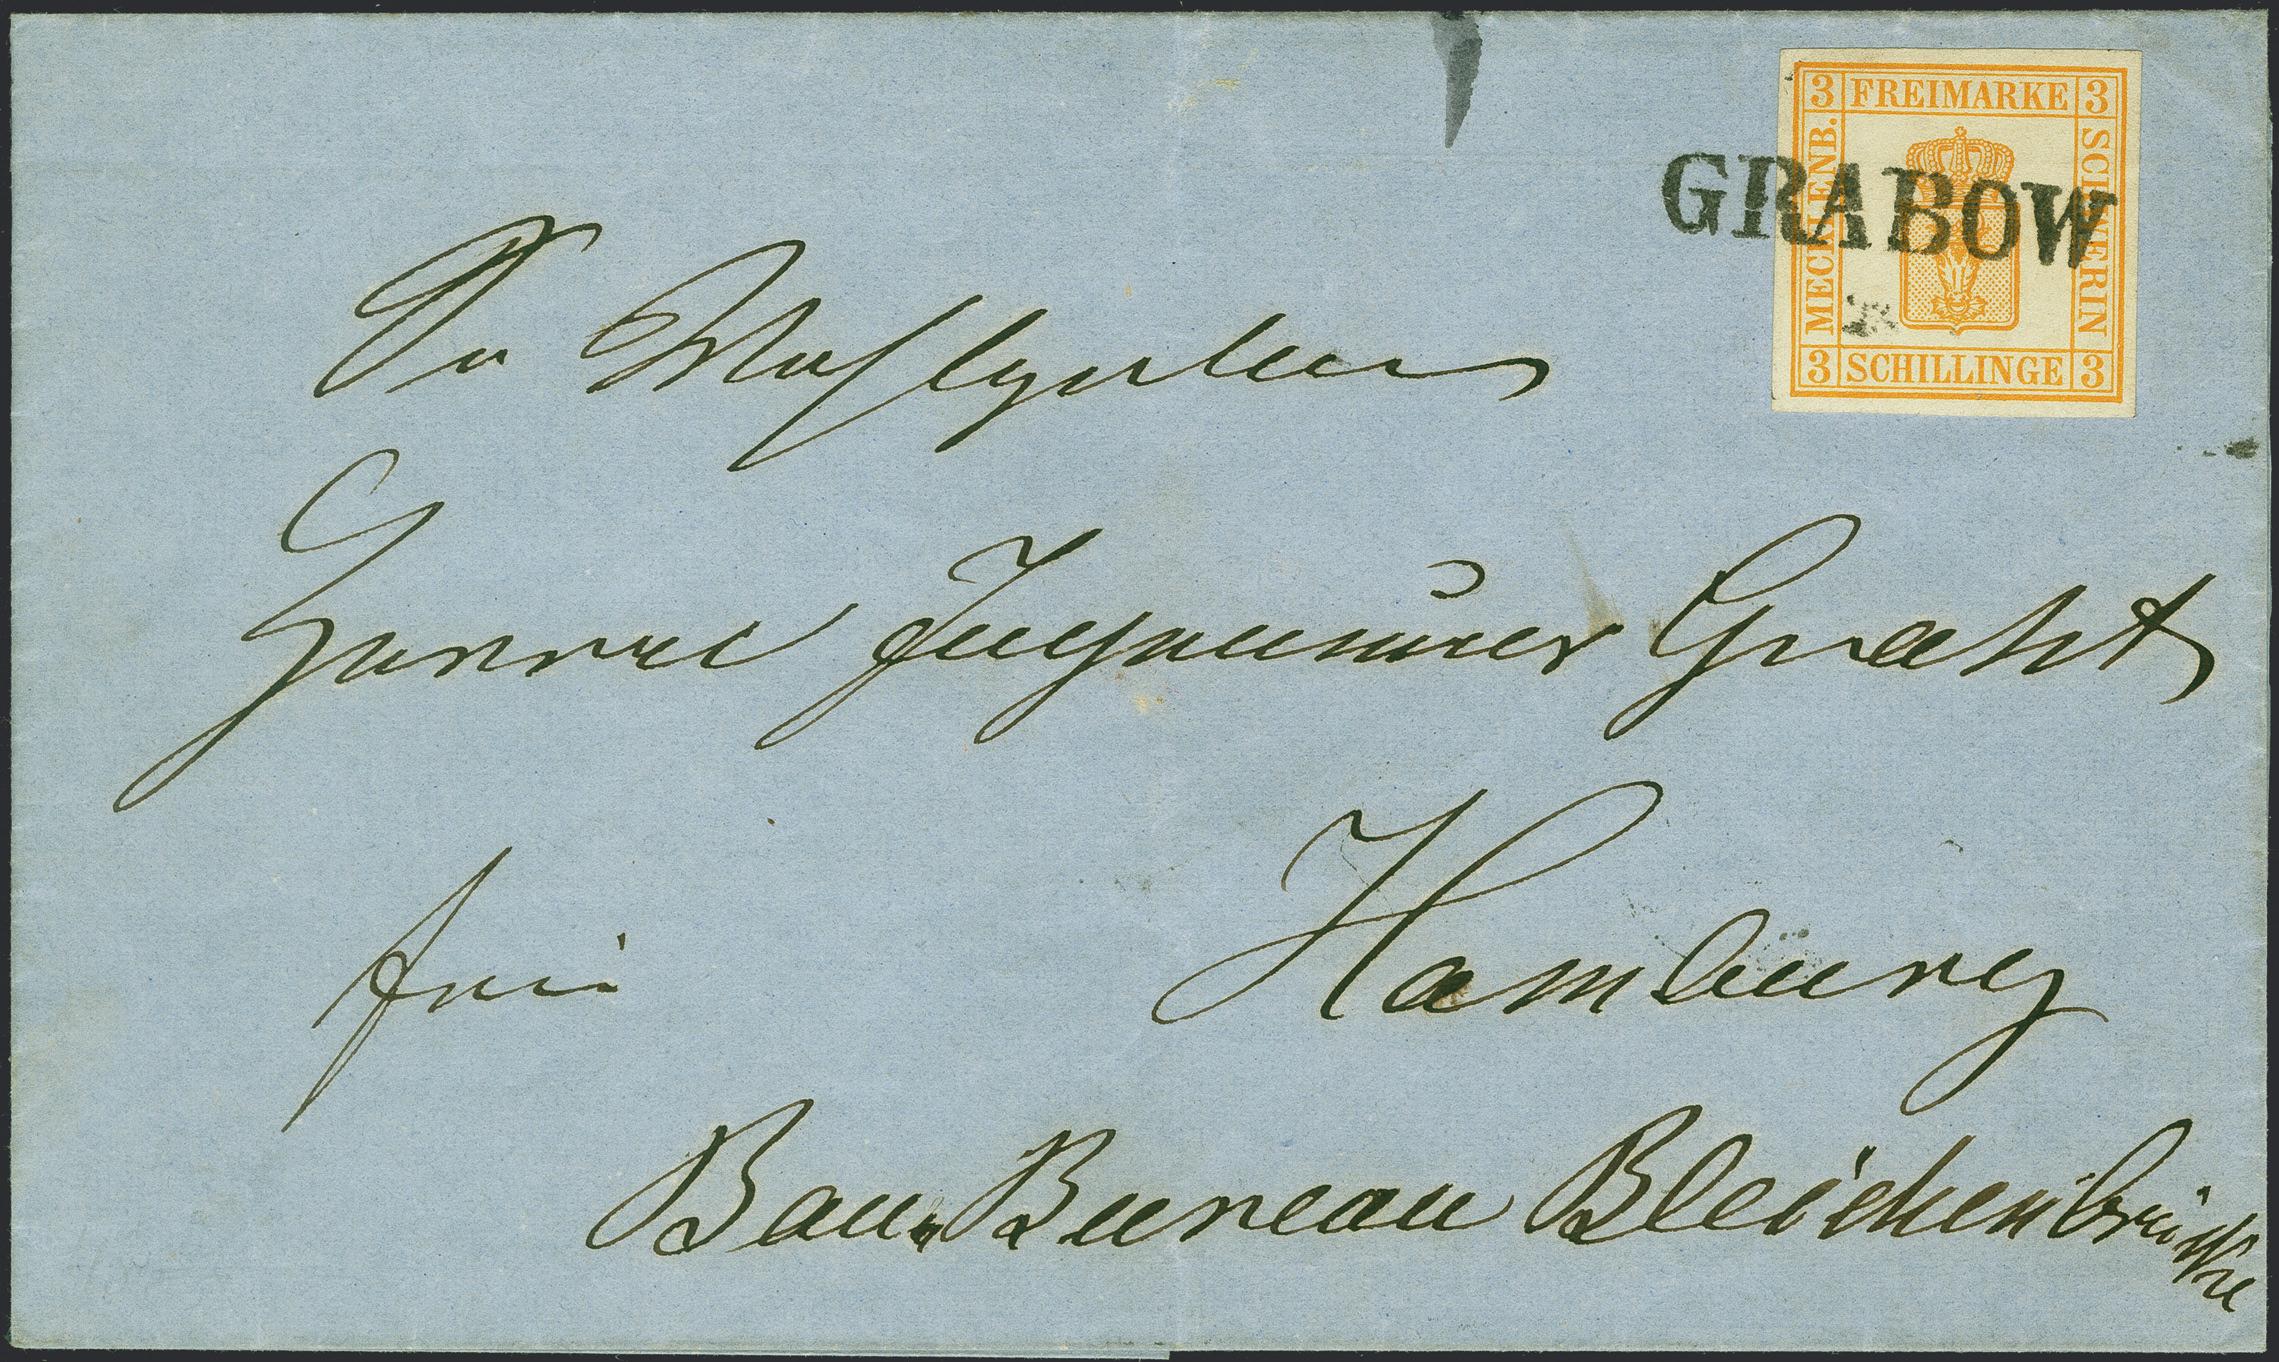 3 FREIMARKE 3
MECKLENB.
SCHWERIN
3 SCHILLINGE 3
GRABOW
Sr Wohlgeboren
Herrn Ingenieur
frei
Hamburg
Bau-Bureau Bleichenbrücke